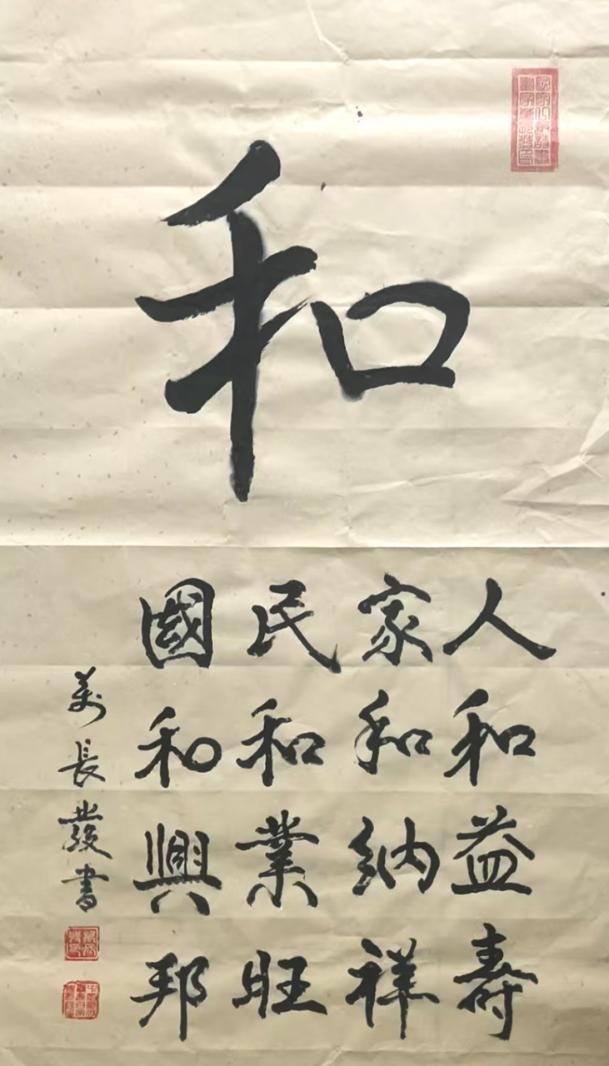 和
人和益壽
家和納祥
民和業旺
國和興邦
萬長發書